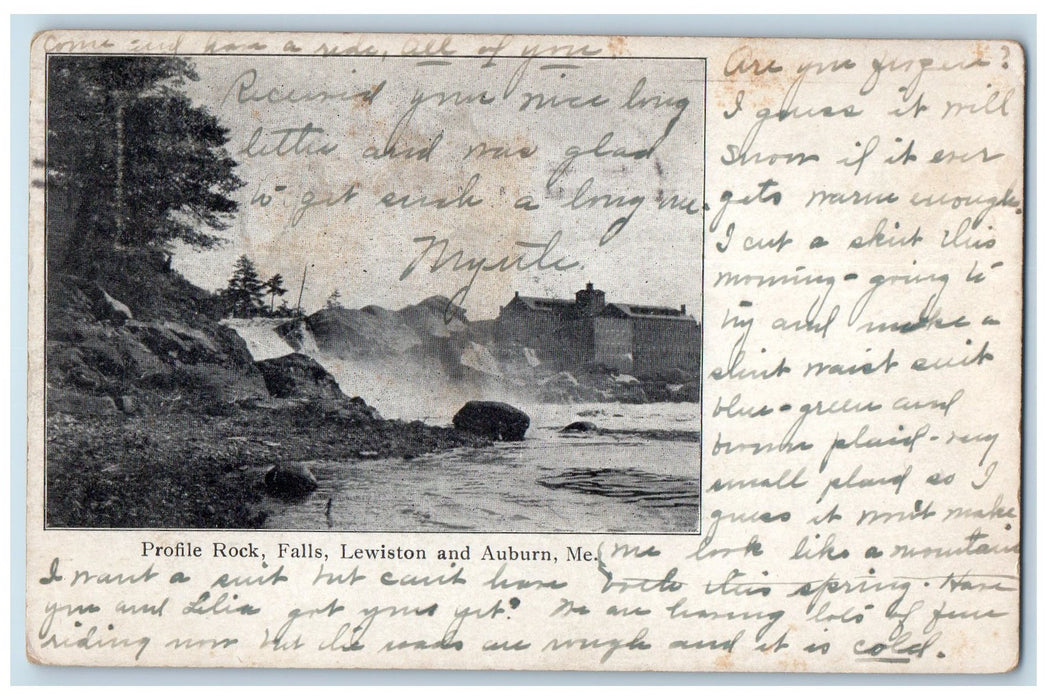 Come and have a ride, all of you
Received your nice long
letter and was glad
to get such a long one.
Myrtle.
Are you frozen?
I guess it will
snow if it ever
gets warm enough.
I cut a skirt this
morning - going to
try and make a
shirt waist suit
blue - green and
brown plaid - very
small plaid so I
guess it won't make
me look like a mountain
Profile Rock, Falls, Lewiston and Auburn, Me.
I want a suit but can't have both this spring. Have
you and Lelia got yours yet? We are having lots of fun
riding now but the roads are rough and it is cold.